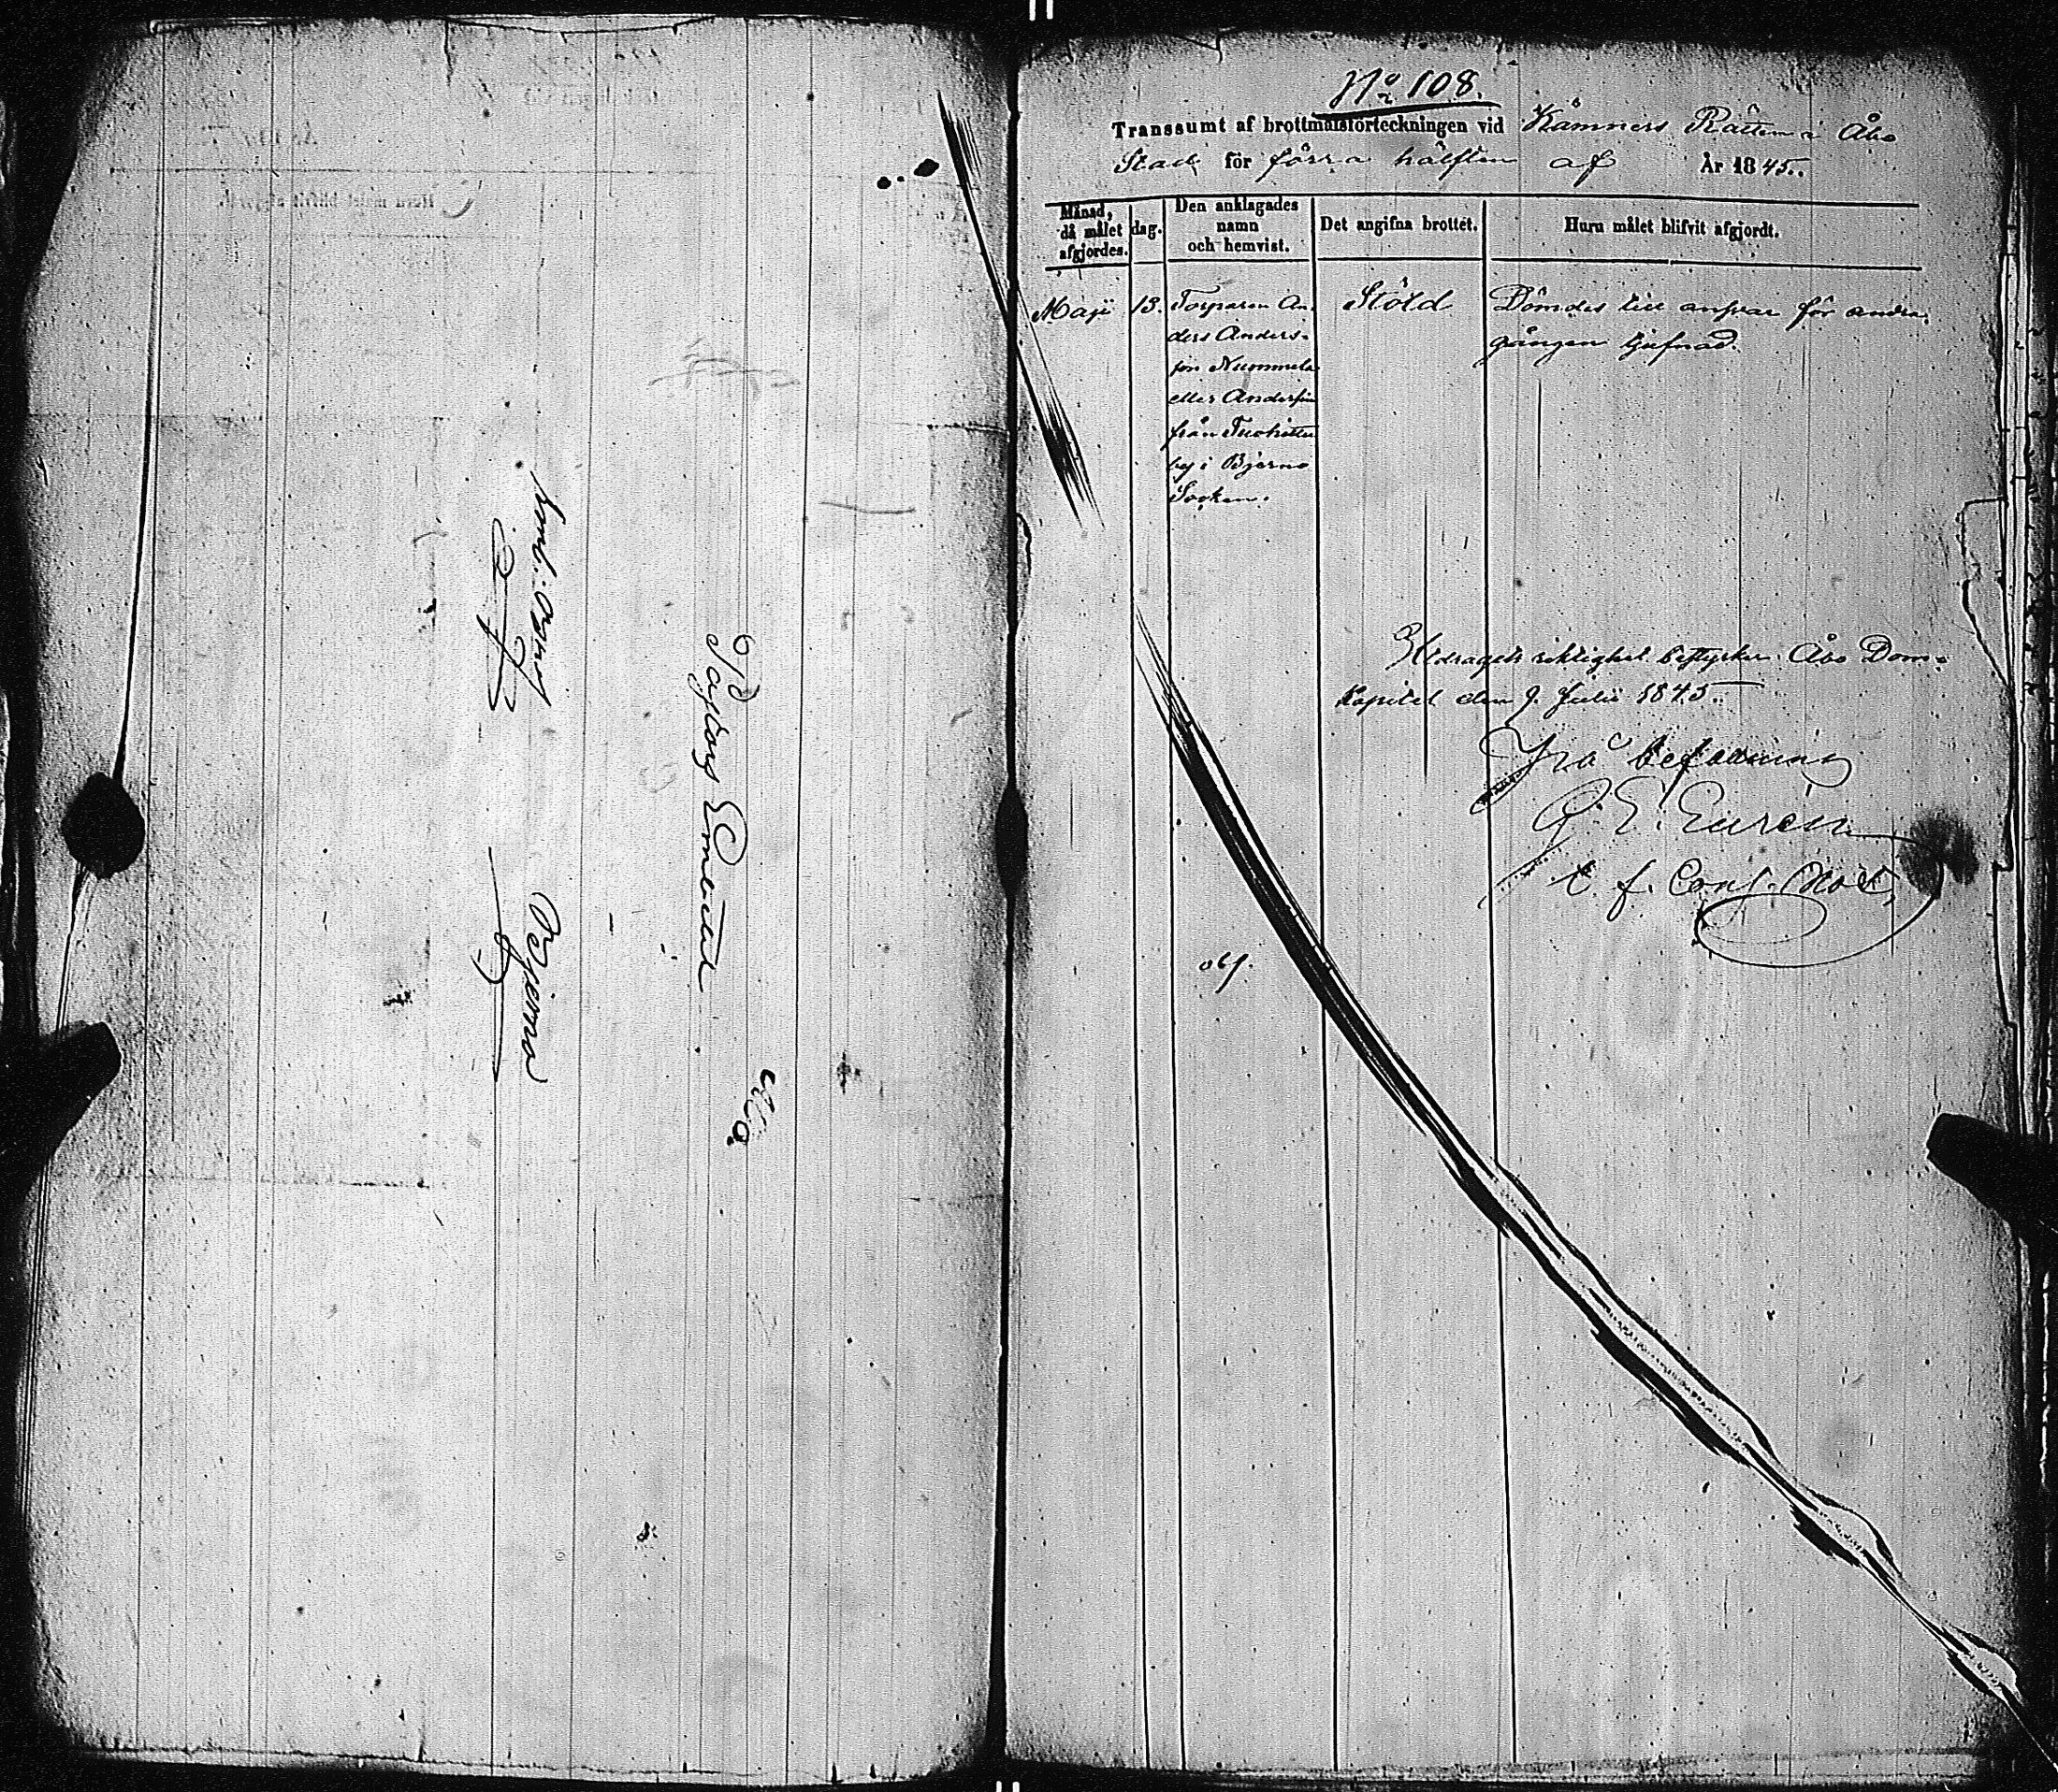 Pastors Embetet
Bjerno
No 108.
Transsumt af brottmålsförteckningen vid Kämners Rätten i Åbo
Stad för förra hälften af År 1845.
Månad, då målet afgjordes.
dag.
Den anklagades namn och hemvist.
Det angifna brottet.
Huru målet blifvit afgjordt.
Maji 13. Torparen An-
ders Anders-
son Nummela
eller Andersson
från
by i Bjerno
Socken.
Stöld
Dömdes till ansvar för andra
gången tjufnad.
Utdragets riktighet bestyrker. Åbo Dom-
kapitel den 9. Julii 1845.
På befallning
G. E. Eurén
t. f. Cons. Not.